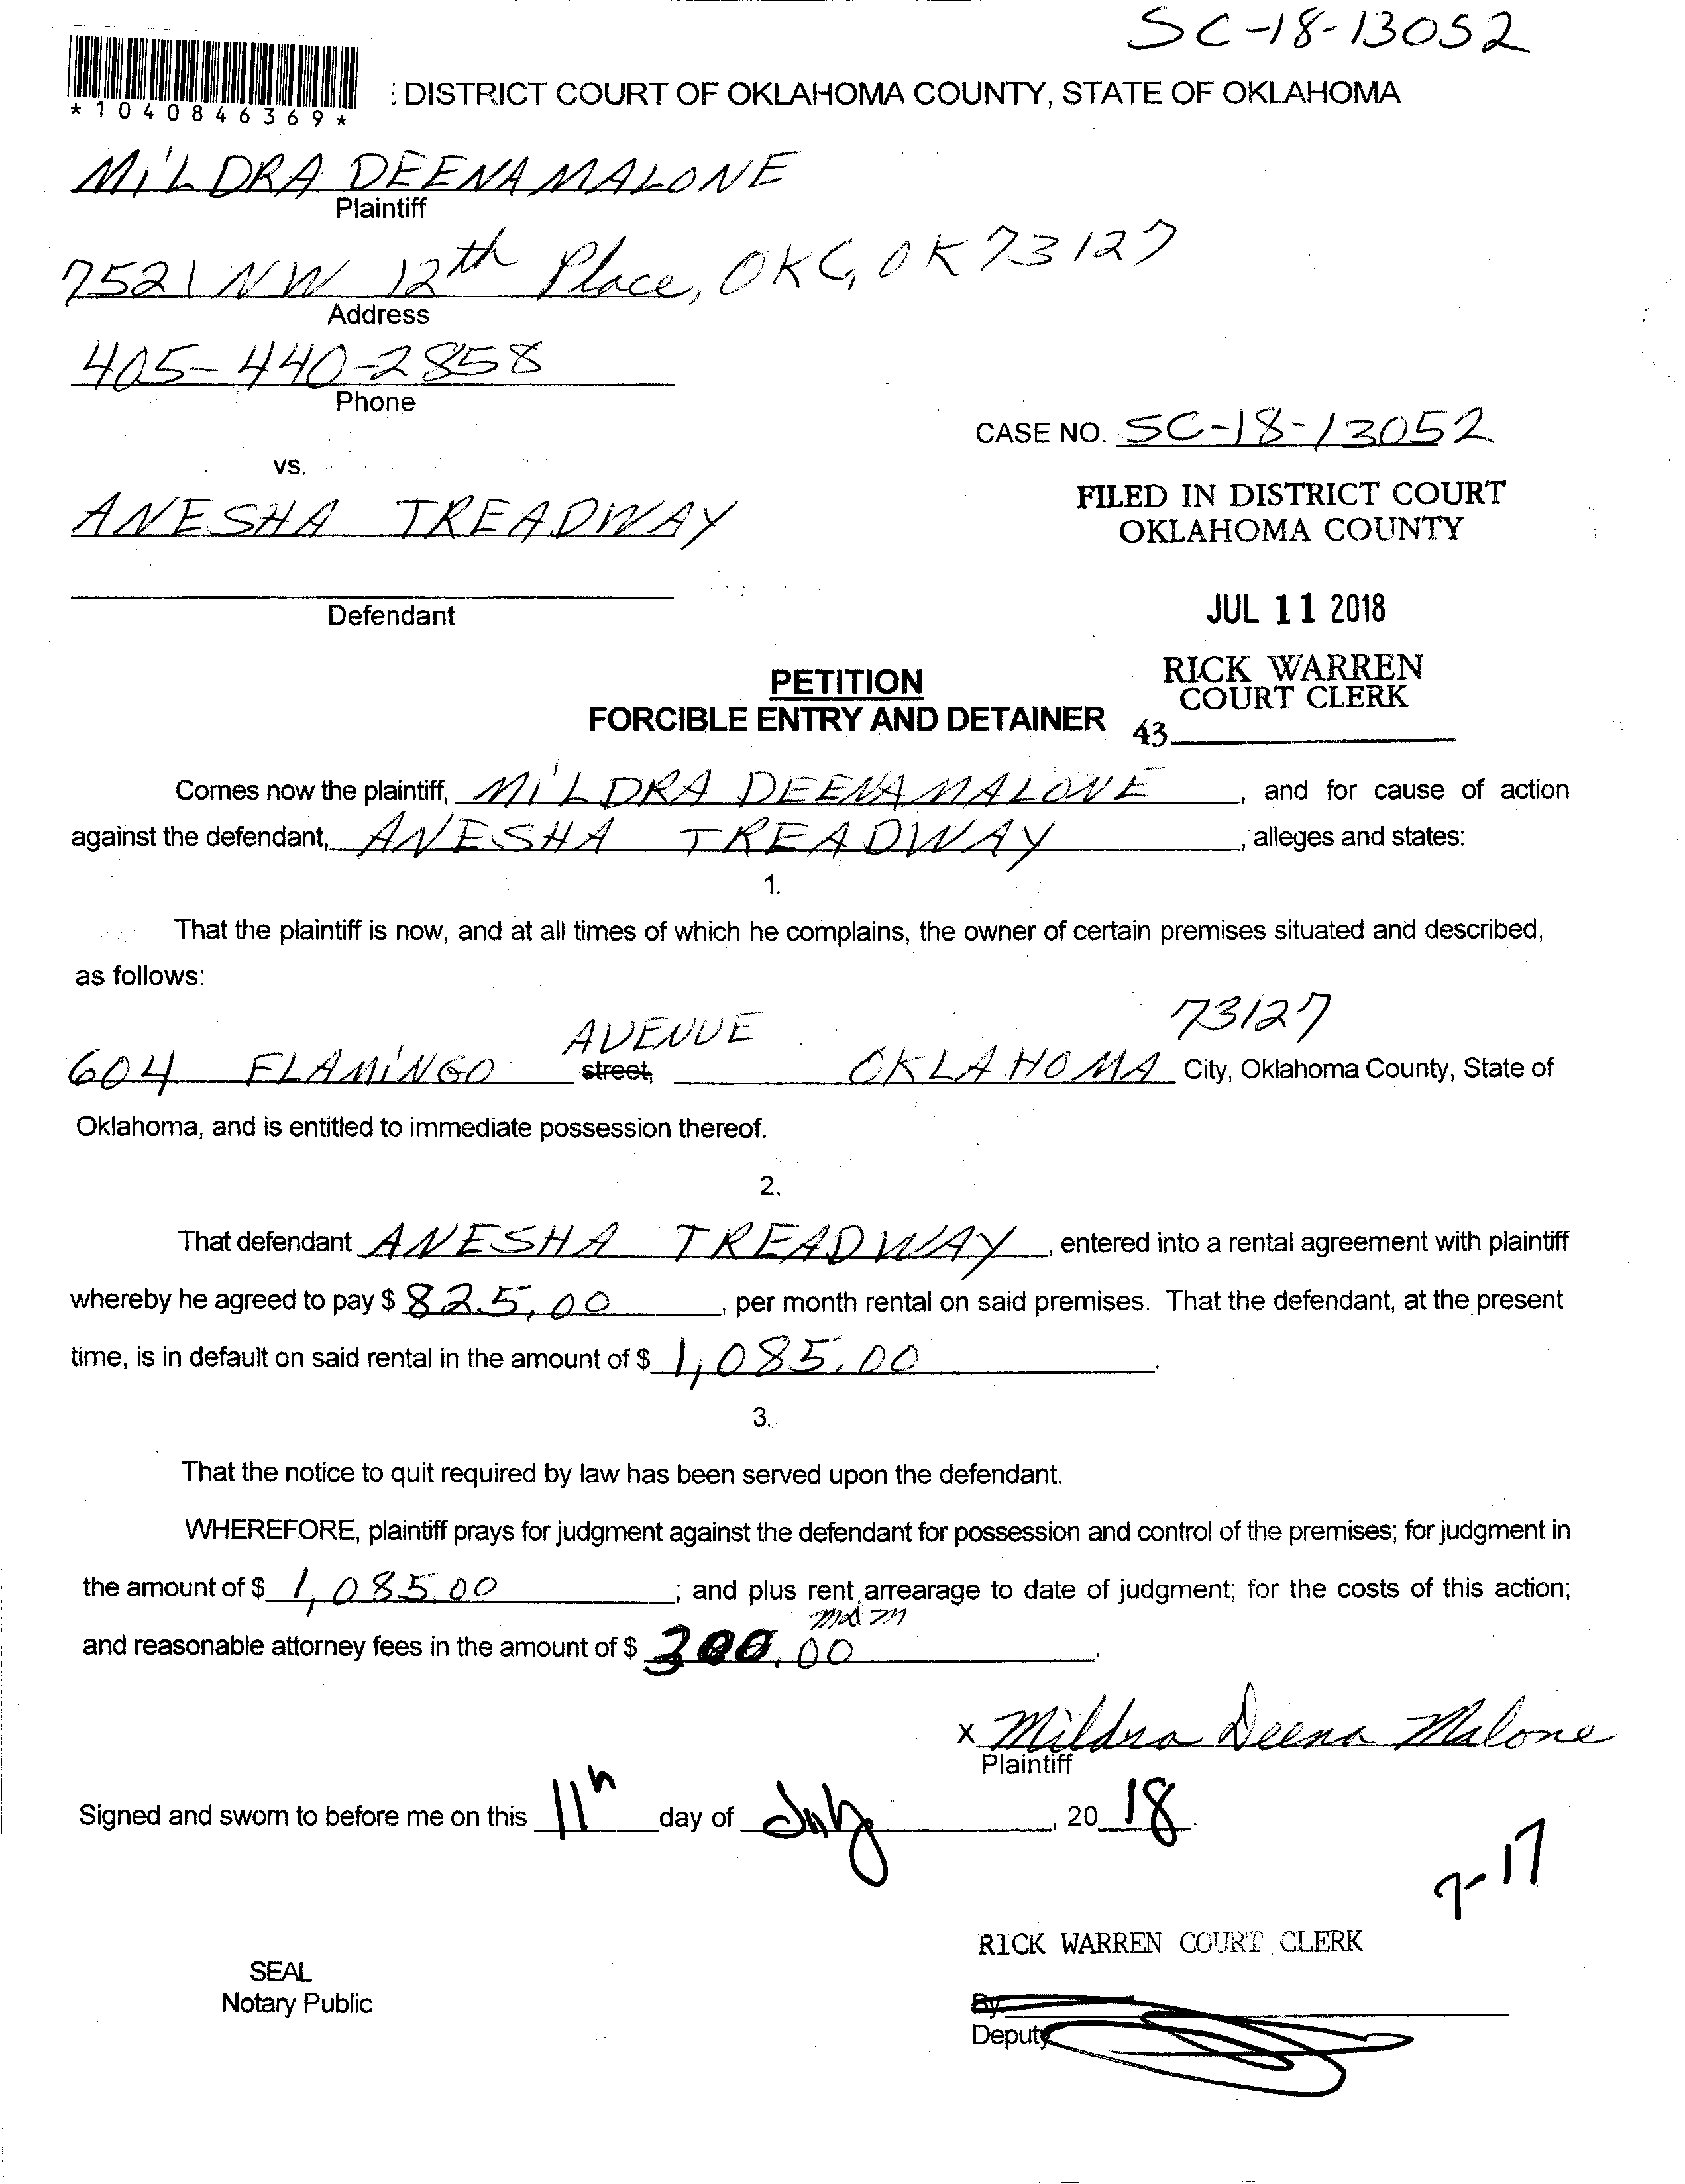 SC-18-13052
*1040846369*
: DISTRICT COURT OF OKLAHOMA COUNTY, STATE OF OKLAHOMA
MiLDRA DEENA MALONE
Plaintiff
7521 NW 12th Place, OKC, OK 73127
Address
405-440-2858
Phone
CASE NO. SC-18-13052
vs.
ANESHA TREADWAY
FILED IN DISTRICT COURT
OKLAHOMA COUNTY
Defendant
JUL 11 2018
PETITION
FORCIBLE ENTRY AND DETAINER
RICK WARREN
COURT CLERK
43
Comes now the plaintiff, MiLDRA DEENA MALONE, and for cause of action
against the defendant, ANESHA TREADWAY, alleges and states:
1.
That the plaintiff is now, and at all times of which he complains, the owner of certain premises situated and described,
as follows:
AVENUE 73127
604 FLAMiNGO street, OKLAHOMA City, Oklahoma County, State of
Oklahoma, and is entitled to immediate possession thereof.
2.
That defendant ANESHA TREADWAY, entered into a rental agreement with plaintiff
whereby he agreed to pay $ 825.00, per month rental on said premises. That the defendant, at the present
time, is in default on said rental in the amount of $ 1,085.00.
3.
That the notice to quit required by law has been served upon the defendant.
WHEREFORE, plaintiff prays for judgment against the defendant for possession and control of the premises; for judgment in
the amount of $ 1,085.00; and plus rent arrearage to date of judgment; for the costs of this action;
mdm
and reasonable attorney fees in the amount of $ 300.00.
x Mildra Deena Malone
Plaintiff
Signed and sworn to before me on this 11th day of July, 20 18.
7-17
RICK WARREN COURT CLERK
SEAL
Notary Public
By:
Deputy